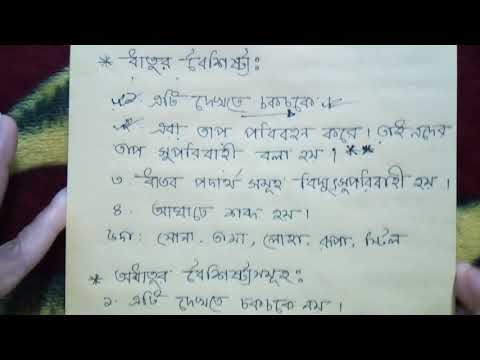 * ধাতুর বৈশিষ্ট্য:
১. এটি দেখতে চকচকে
২. এরা তাপ পরিবহন করে। তাই এদের
তাপ সুপরিবাহী বলা হয়। **
৩. ধাতব পদার্থ সমূহ বিদ্যুৎ সুপরিবাহী হয়।
৪. আঘাতে শব্দ হয়।
উদা: সোনা, তামা, লোহা, রূপা, স্টিল
* অধাতুর বৈশিষ্ট্যসমূহ:
১. এটি দেখতে চকচকে নয়।